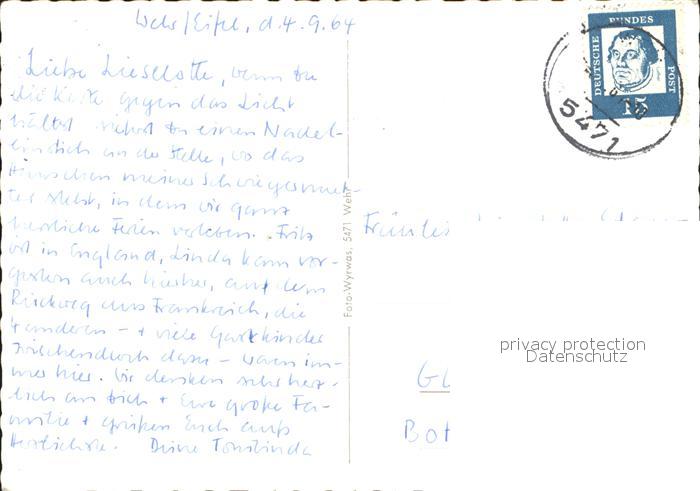 Wehr/Eifel, d. 4.9.64
Liebe Lieselotte, wenn Du
die Karte gegen das Licht
hältst siehst Du einen Nadel-
einstich an der Stelle, wo das
Häuschen meiner Schwiegermut-
ter steht, in dem wir ganz
herrliche Ferien verleben. Fritz
ist in England, Linda kam vor-
gestern auch hierher, auf dem
Rückweg aus Frankreich, die
4 anderen - + viele Gastkinder
zwischendurch dazu - waren im-
mer hier. Wir denken sehr herz-
lich an Dich + Eure große Fa-
milie + grüßen Euch aufs
Herzlichste. Deine
DEUTSCHE BUNDESPOST
15
5471
Foto-Wyrwas, 5471 Wehr
Fräulein
privacy protection
Datenschutz